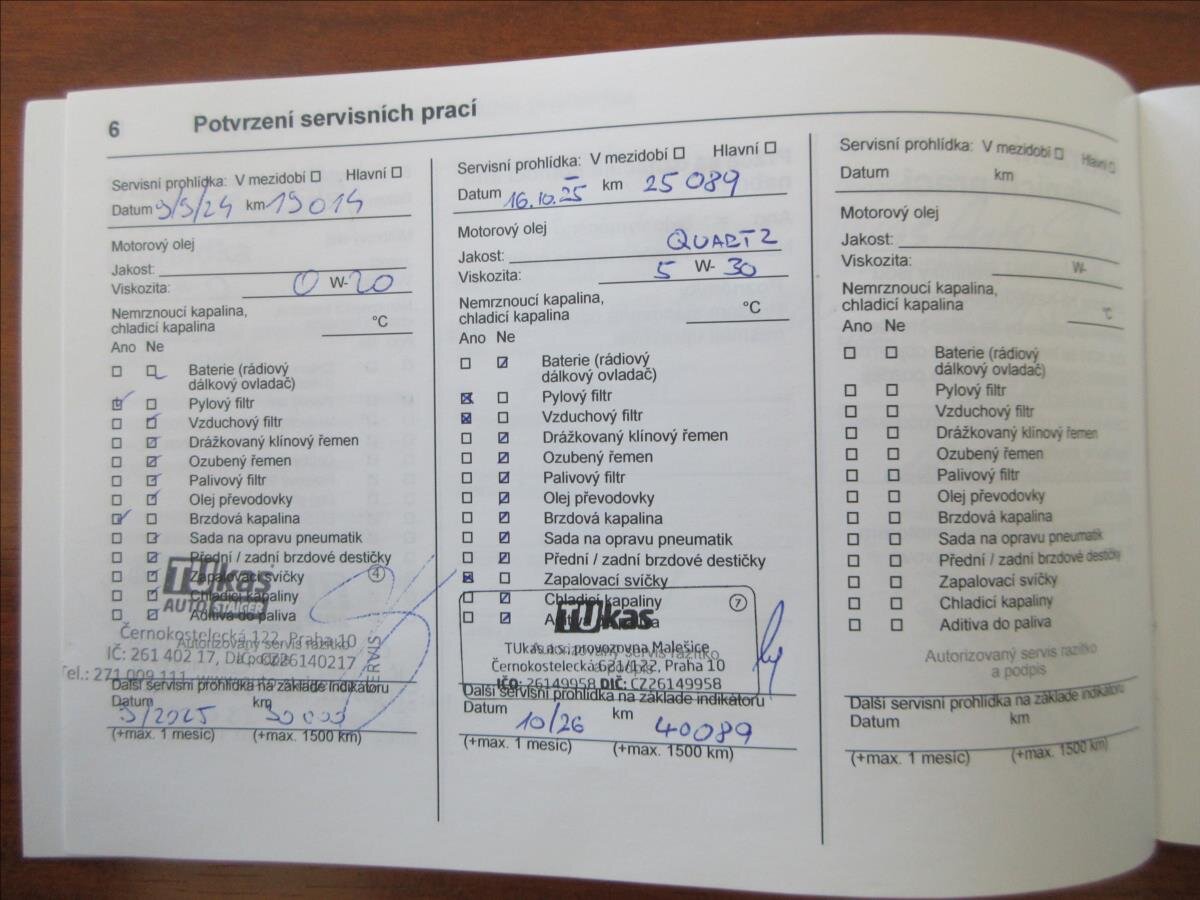 6 Potvrzení servisních prací
Servisní prohlídka: V mezidobí ☐ Hlavní ☐
Datum 9/9/24 km 19014
Motorový olej
Jakost:
Viskozita: 0 W-20
Nemrznoucí kapalina,
chladicí kapalina °C
Ano Ne
Baterie (rádiový
dálkový ovladač)
Pylový filtr
Vzduchový filtr
Drážkovaný klínový řemen
Ozubený řemen
Palivový filtr
Olej převodovky
Brzdová kapalina
Sada na opravu pneumatik
Přední / zadní brzdové destičky
Zapalovací svíčky
Chladicí kapaliny
Aditiva do paliva
TUkas
AUTO STAIGER
4
Černokostelecká 122, Praha 10
Autorizovaný servis razítko
a podpis
IČ: 261 402 17, DIČ: CZ26140217
Tel.: 271 009 111
Další servisní prohlídka na základě indikátoru
Datum km
9/2025 30000
(+max. 1 měsíc) (+max. 1500 km)
Servisní prohlídka: V mezidobí ☐ Hlavní ☐
Datum 16.10.25 km 25089
Motorový olej
Jakost: QUARTZ
Viskozita: 5 W-30
Nemrznoucí kapalina,
chladicí kapalina °C
Ano Ne
Baterie (rádiový
dálkový ovladač)
Pylový filtr
Vzduchový filtr
Drážkovaný klínový řemen
Ozubený řemen
Palivový filtr
Olej převodovky
Brzdová kapalina
Sada na opravu pneumatik
Přední / zadní brzdové destičky
Zapalovací svíčky
Chladicí kapaliny
Aditiva do paliva
TUkas
7
TUkas a.s., provozovna Malešice
Autorizovaný servis razítko
a podpis
Černokostelecká 621/122, Praha 10
IČO: 26149958 DIČ: CZ26149958
Další servisní prohlídka na základě indikátoru
Datum km
10/26 40089
(+max. 1 měsíc) (+max. 1500 km)
Servisní prohlídka: V mezidobí ☐ Hlavní ☐
Datum km
Motorový olej
Jakost:
Viskozita: W-
Nemrznoucí kapalina,
chladicí kapalina °C
Ano Ne
Baterie (rádiový
dálkový ovladač)
Pylový filtr
Vzduchový filtr
Drážkovaný klínový řemen
Ozubený řemen
Palivový filtr
Olej převodovky
Brzdová kapalina
Sada na opravu pneumatik
Přední / zadní brzdové destičky
Zapalovací svíčky
Chladicí kapaliny
Aditiva do paliva
Autorizovaný servis razítko
a podpis
Další servisní prohlídka na základě indikátoru
Datum km
(+max. 1 měsíc) (+max. 1500 km)